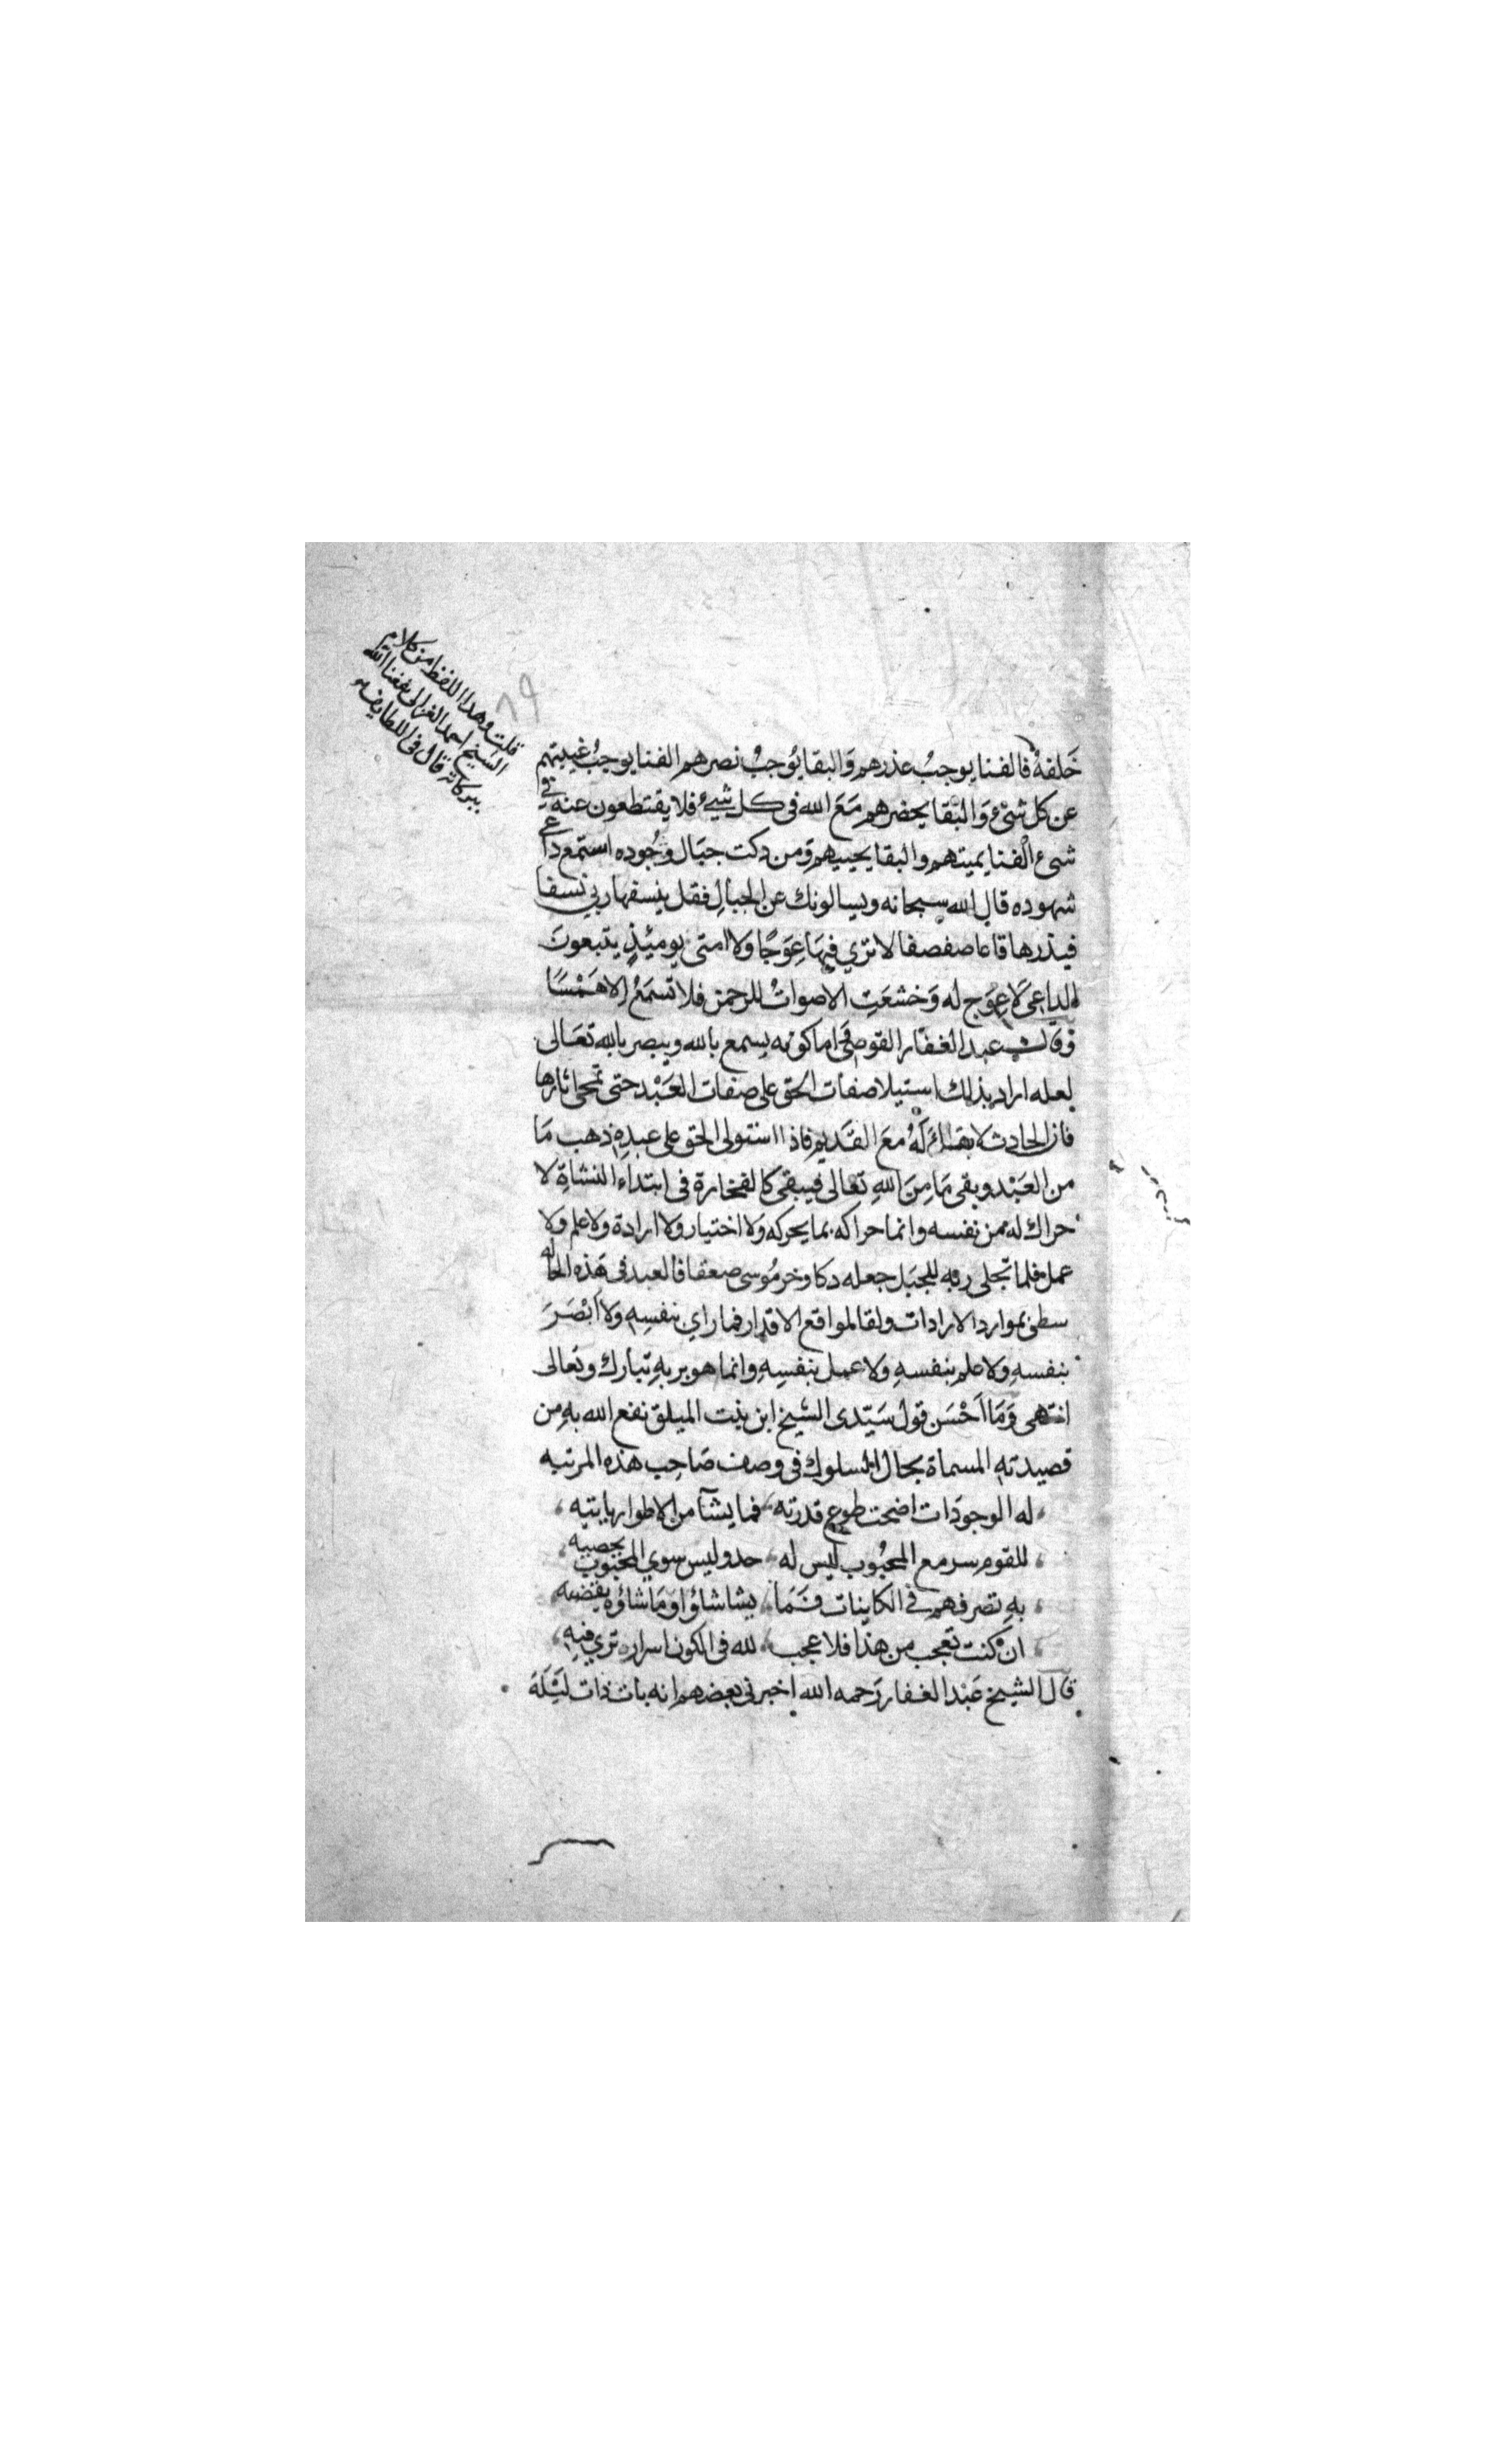 قلت وهذا اللفظ من كلام
الشيخ احمد الغزالى نفعنا الله
ببركاته قال فى اللطايف
٨٩
خَلفهُ فالفنا يوجبُ عذرهم وَالبقا يُوجبُ نصرهم الفنا يوجبُ غيبتهم
عن كل شىْء وَالبقا يحضرهم مَعَ الله فى كل شيئ فلا يقتطعون عنه في
شىء الفنا يميتهم والبقا يحييهم وَمن دكت جبَال وجُوده استمع داعى
شهوده قال الله سبحانه ويسالونك عن الجبالِ فقل ينسفها ربي نسفا
فيذرها قاعا صفصفا لا تري فيهَا عِوَجًا وَلا امتى يوميئذٍ يتبعونَ
الداعى لا عِوَج له وَخشعَتِ الاصواتُ للرحمن فلا تسمَعُ الا هَمْسًا
وَقال عبد الغفار القوصى اما كونه يسمع بالله ويبصر بالله تعَالى
لعله اراد بذلك استيلا صفات الحق على صفات العَبْد حتى تمحى اثارها
فان الحادث لا بقاء لَهُ معَ القَديم فاذا استولى الحق على عبدِهِ ذهب مَا
من العَبْد وبقى مَا مِنَ اللهِ تعالى فيبقى كالفخارة فى ابتداء النشاةِ لا
حراك له من نفسه وانما حراكه بما يحركه وَلا اختيار ولا ارادة ولا علم ولا
عمل فلما تجلى ربه للجبَل جعله دكا وخر مُوسى صعقا فالعبد فى هَذه الحاله
بموارد الارادات ولقا لمواقع الاقدار فما راي بنفسِهِ وَلا اَبْصَرَ
بنفسهِ ولا علم بنفسهِ ولا عمل بنفسِهِ وانما هو بربهِ تبارك وتعالى
انتهى وَمَا اَحْسَن قول سَيّدى الشيخ ابن بنت الميلق نفع الله بهِ من
قصيدتهِ المسماة بحال السلوك فى وصف صَاحِب هذه المرتبه
له الوجودَات اضحت طوع قدرته فما يشآ من الاطوار ياتيه
للقوم سر مع المحبُوب ليس له حد وليس سوي المحبوب يحصيه
بهِ تصرفهم فى الكاينات فَمَا يشا شاؤا وَمَا شاؤه يقضيه
ان كنت تعجب من هذا فلا عجب لله فى الكون اسرار تري فيهِ
قال الشيخ عَبْد الغفار رَحمه الله اخبرنى بعضهم انه بات ذات ليْلَة